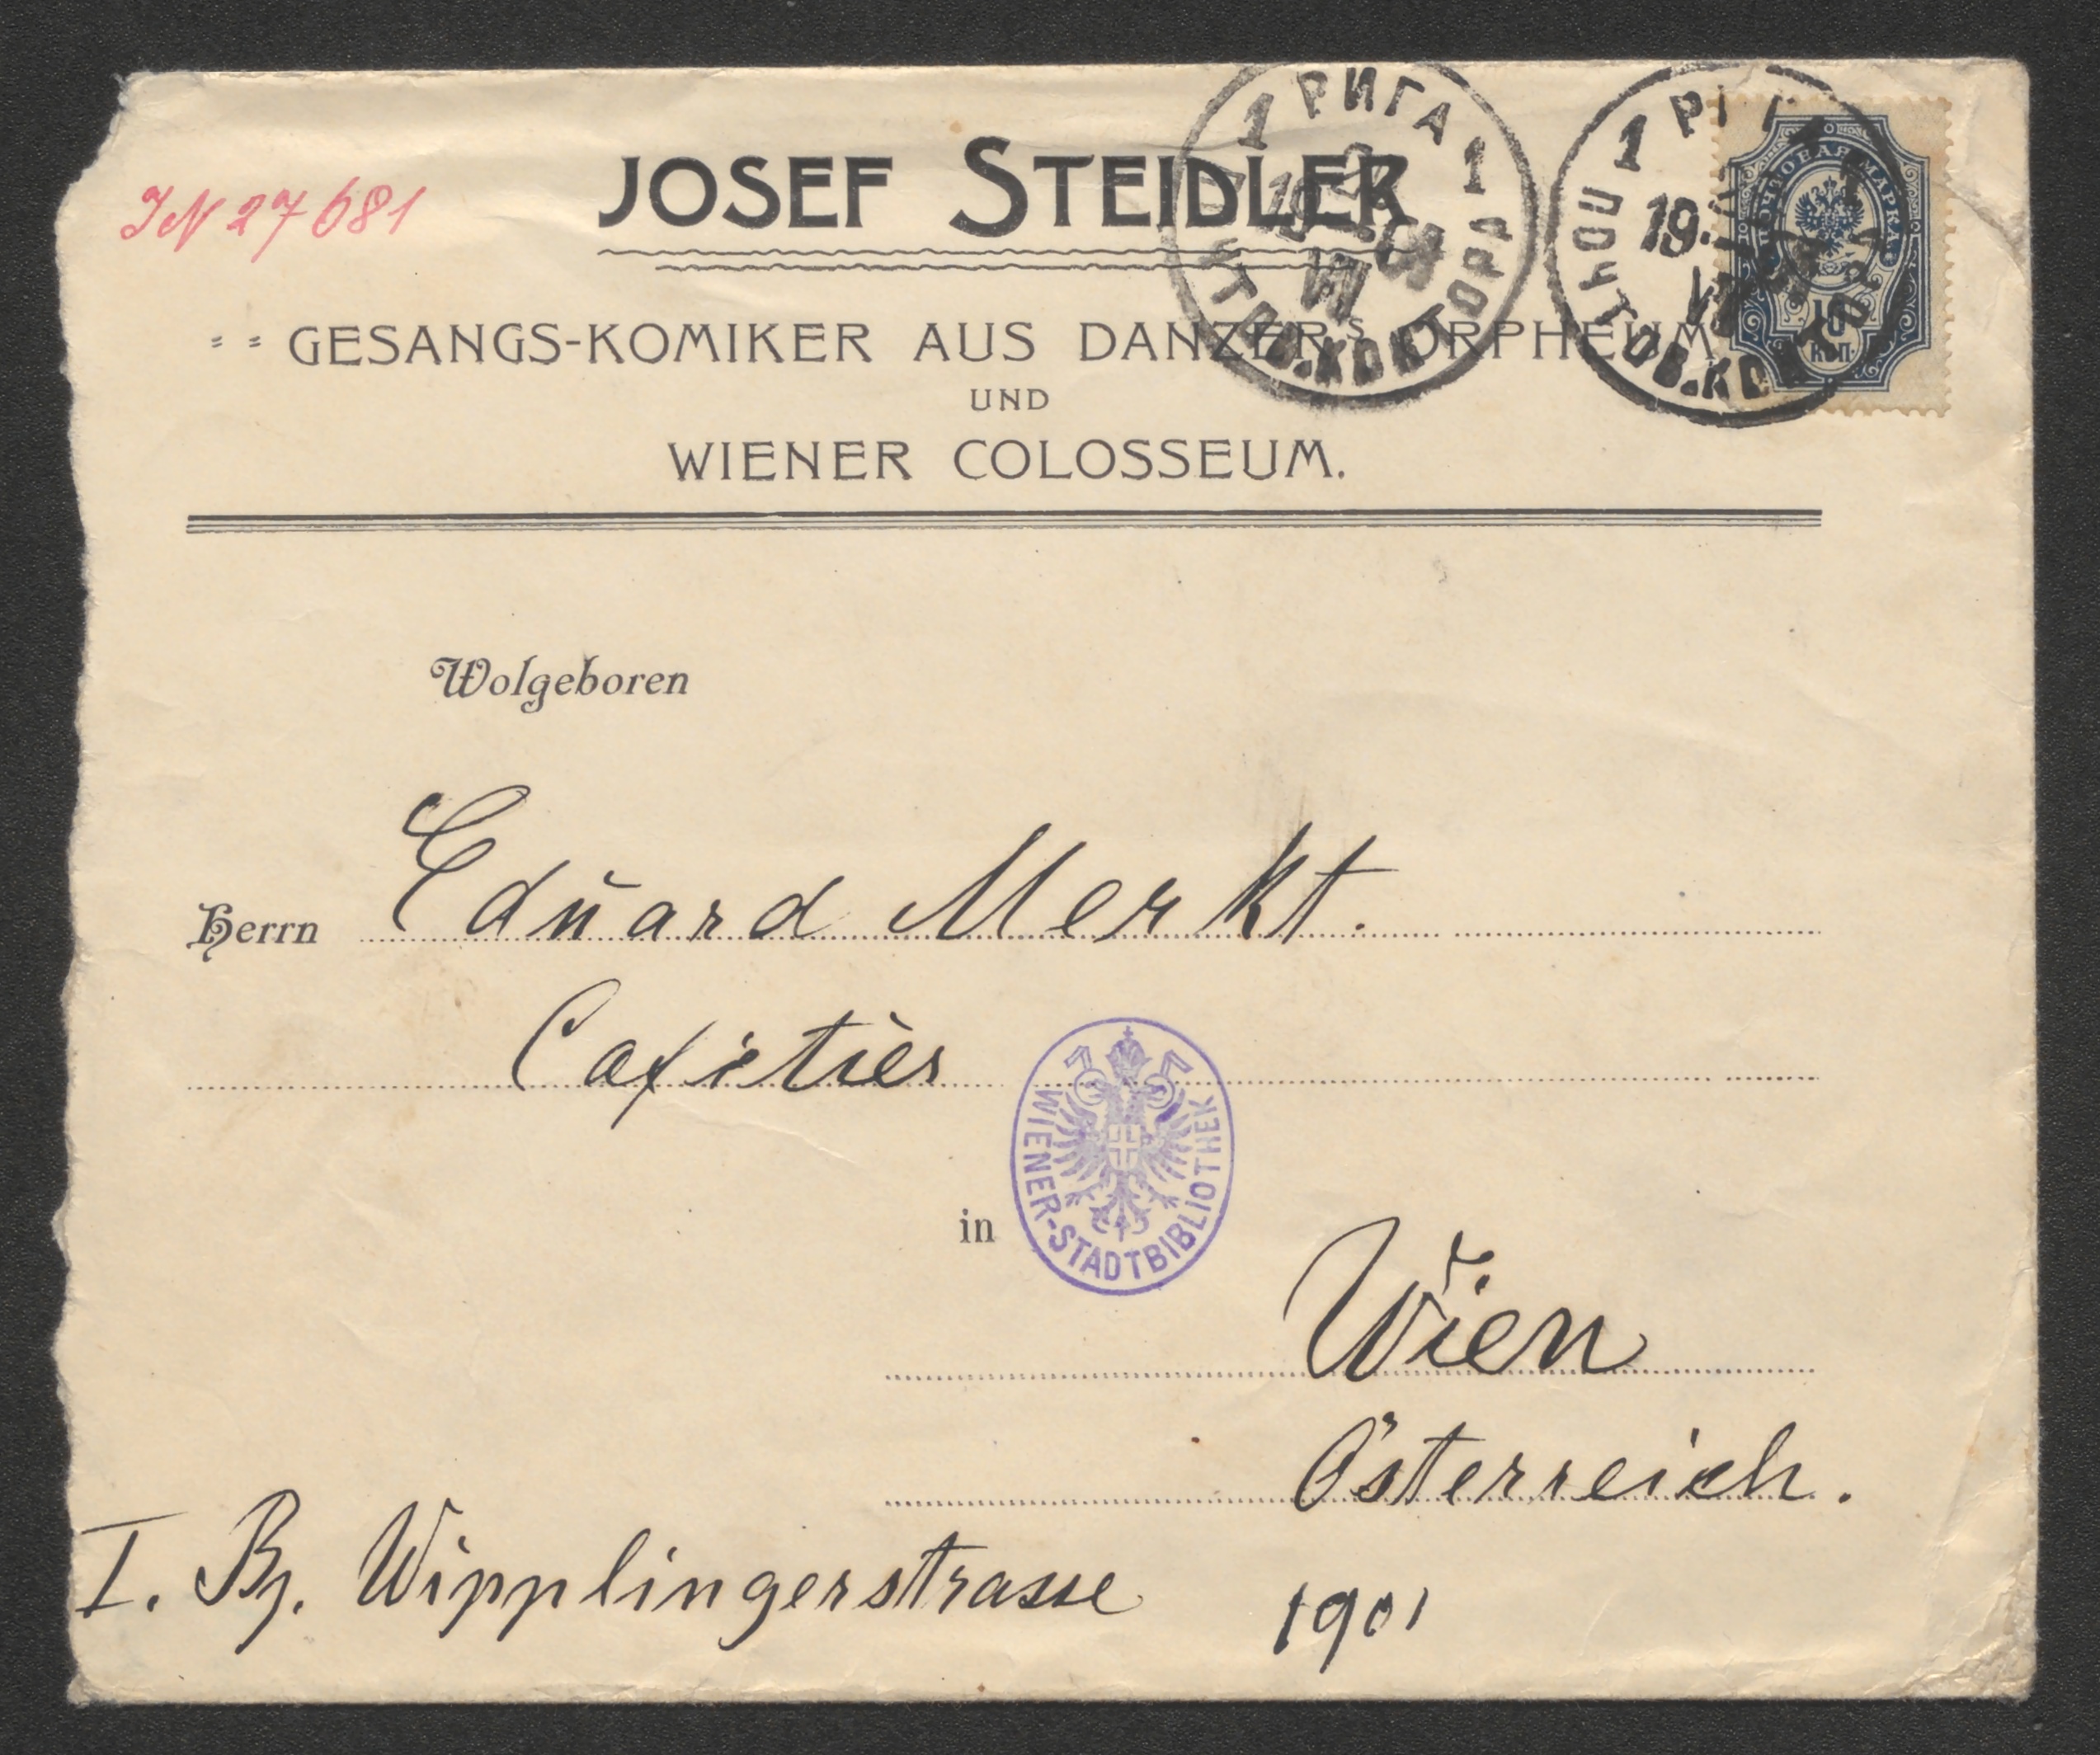 JOSEF STEIDLER
IN 27681
GESANGS-KOMIKER AUS DANZER'S ORPHEUM
UND
WIENER COLOSSEUM.
1 РИГА 1
ПОЧТОВ. КОНТОРА
1
19
ПОЧТОВ. КОНТОРА
ПОЧТОВАЯ МАРКА
10
КОП.
Wolgeboren
Herrn Eduard Merkt.
Cafetièr
WIENER-STADTBIBLIOTHEK
in
Wien
Österreich.
I. Bz. Wipplingerstrasse
1901